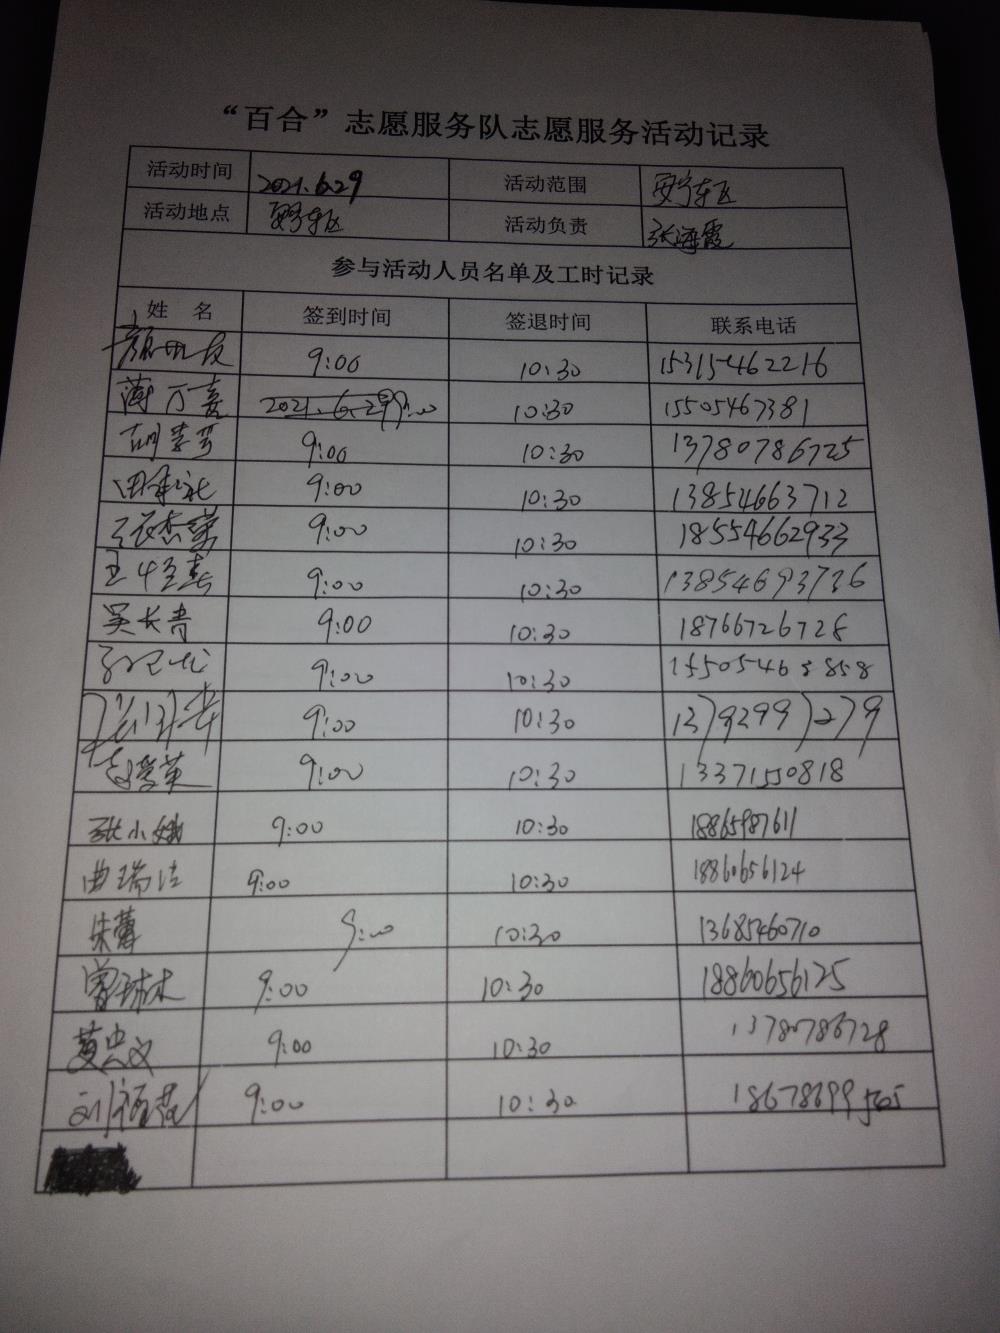 “百合”志愿服务队志愿服务活动记录
活动时间 2021.6.29 活动范围 安宁东区
活动地点 安宁东区 活动负责 张海霞
参与活动人员名单及工时记录
姓 名 签到时间 签退时间 联系电话
9:00 10:30 15315462216
薄万喜 2021.6.29 9:00 10:30 15505467381
胡孝芳 9:00 10:30 13780786725
9:00 10:30 13854663712
张杰荣 9:00 10:30 18554662933
9:00 10:30 13854693736
吴长青 9:00 10:30 18766726728
9:00 10:30
9:00 10:30 13792997279
赵爱英 9:00 10:30 13371550818
张小娥 9:00 10:30 18865987611
曲瑞洁 9:00 10:30 18860656124
朱蕾 9:00 10:30 13685460710
曾琳木 9:00 10:30 18860656125
黄忠义 9:00 10:30 13780786728
9:00 10:30